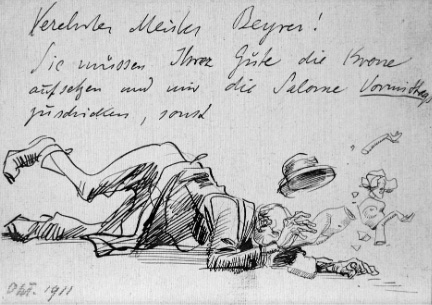 Verehrter Meister Beyrer!
Sie müssen Ihrer Güte die Krone
aufsetzen und mir die Salome Vormittags
zuschicken, sonst
Okt. 1911